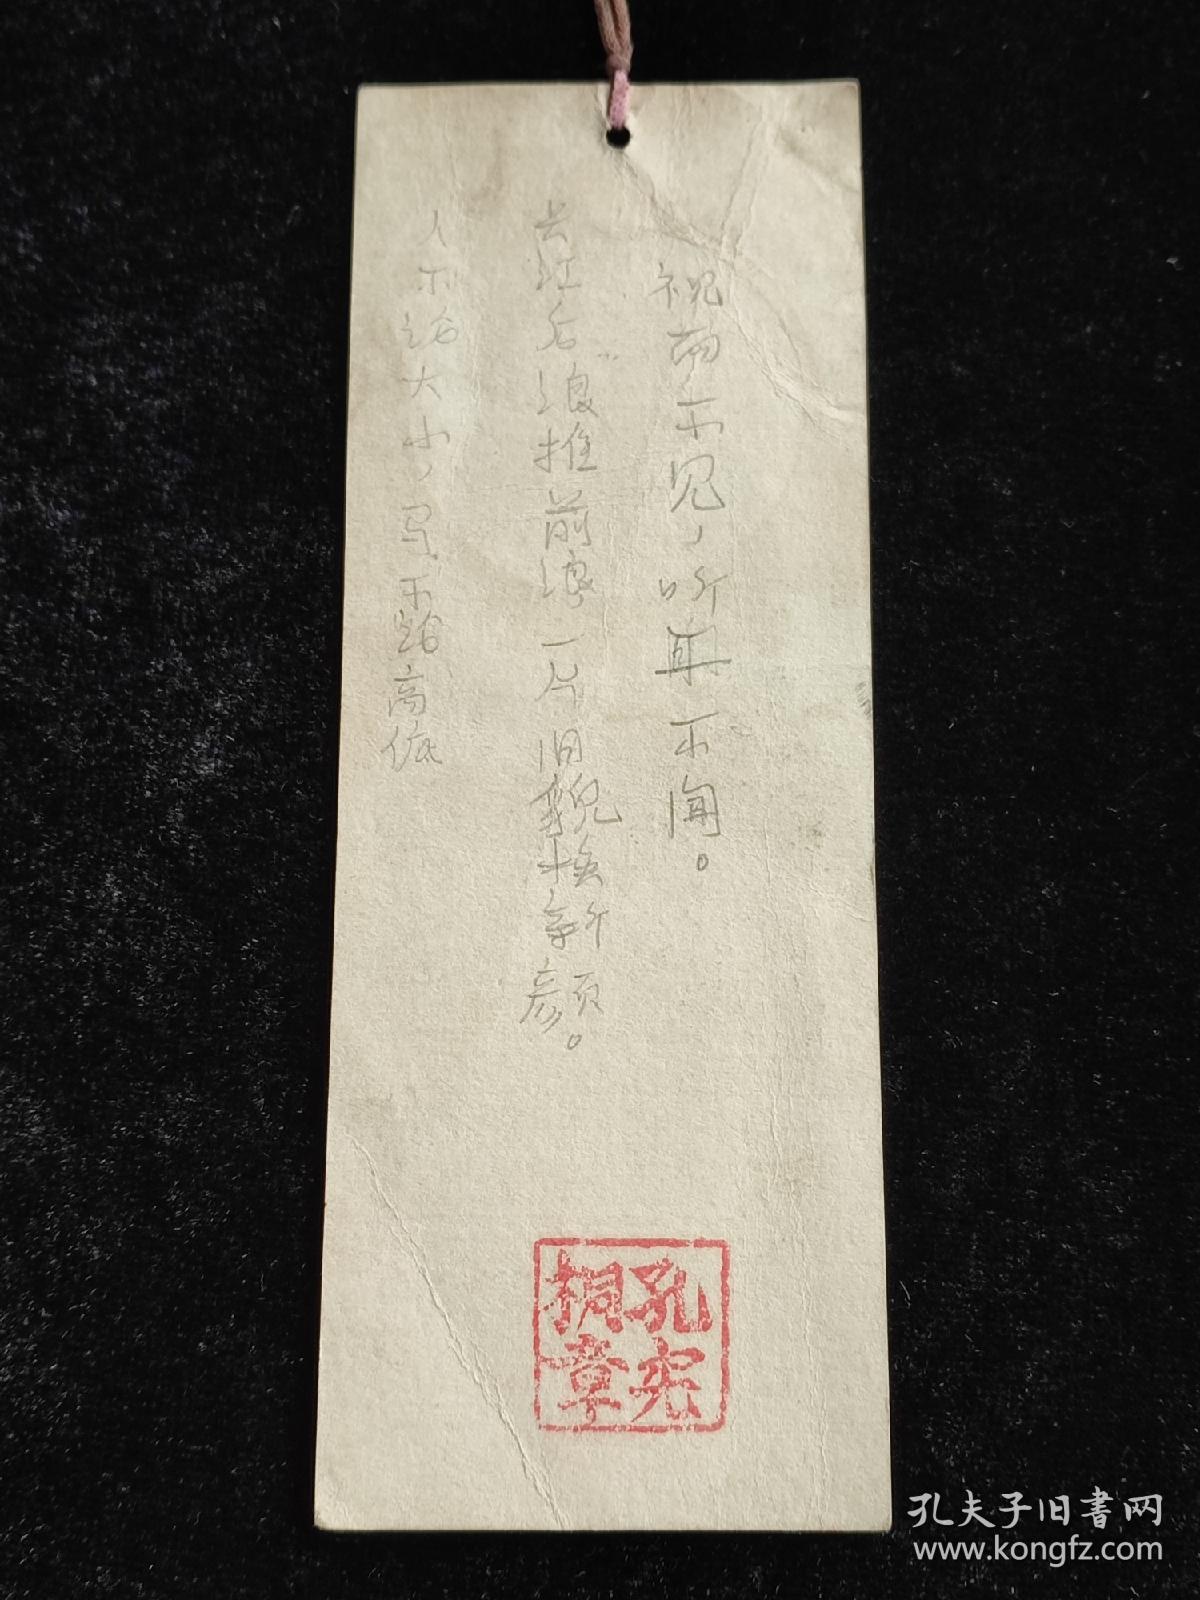 祝而不见，听耳不闻。
长江后浪推前浪，一片旧貌换新颜。
人不论大小，马不论高低
孔宪
桐章
孔夫子旧书网
www.kongfz.com